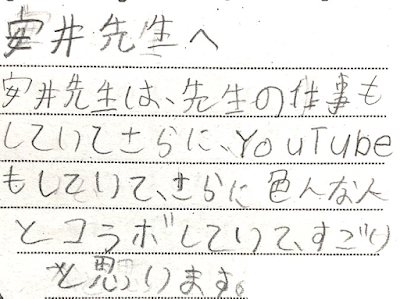 安井先生へ
安井先生は、先生の仕事も
していてさらに、YouTube
もしていて、さらに色んな人
とコラボしていて、すごい
と思います。